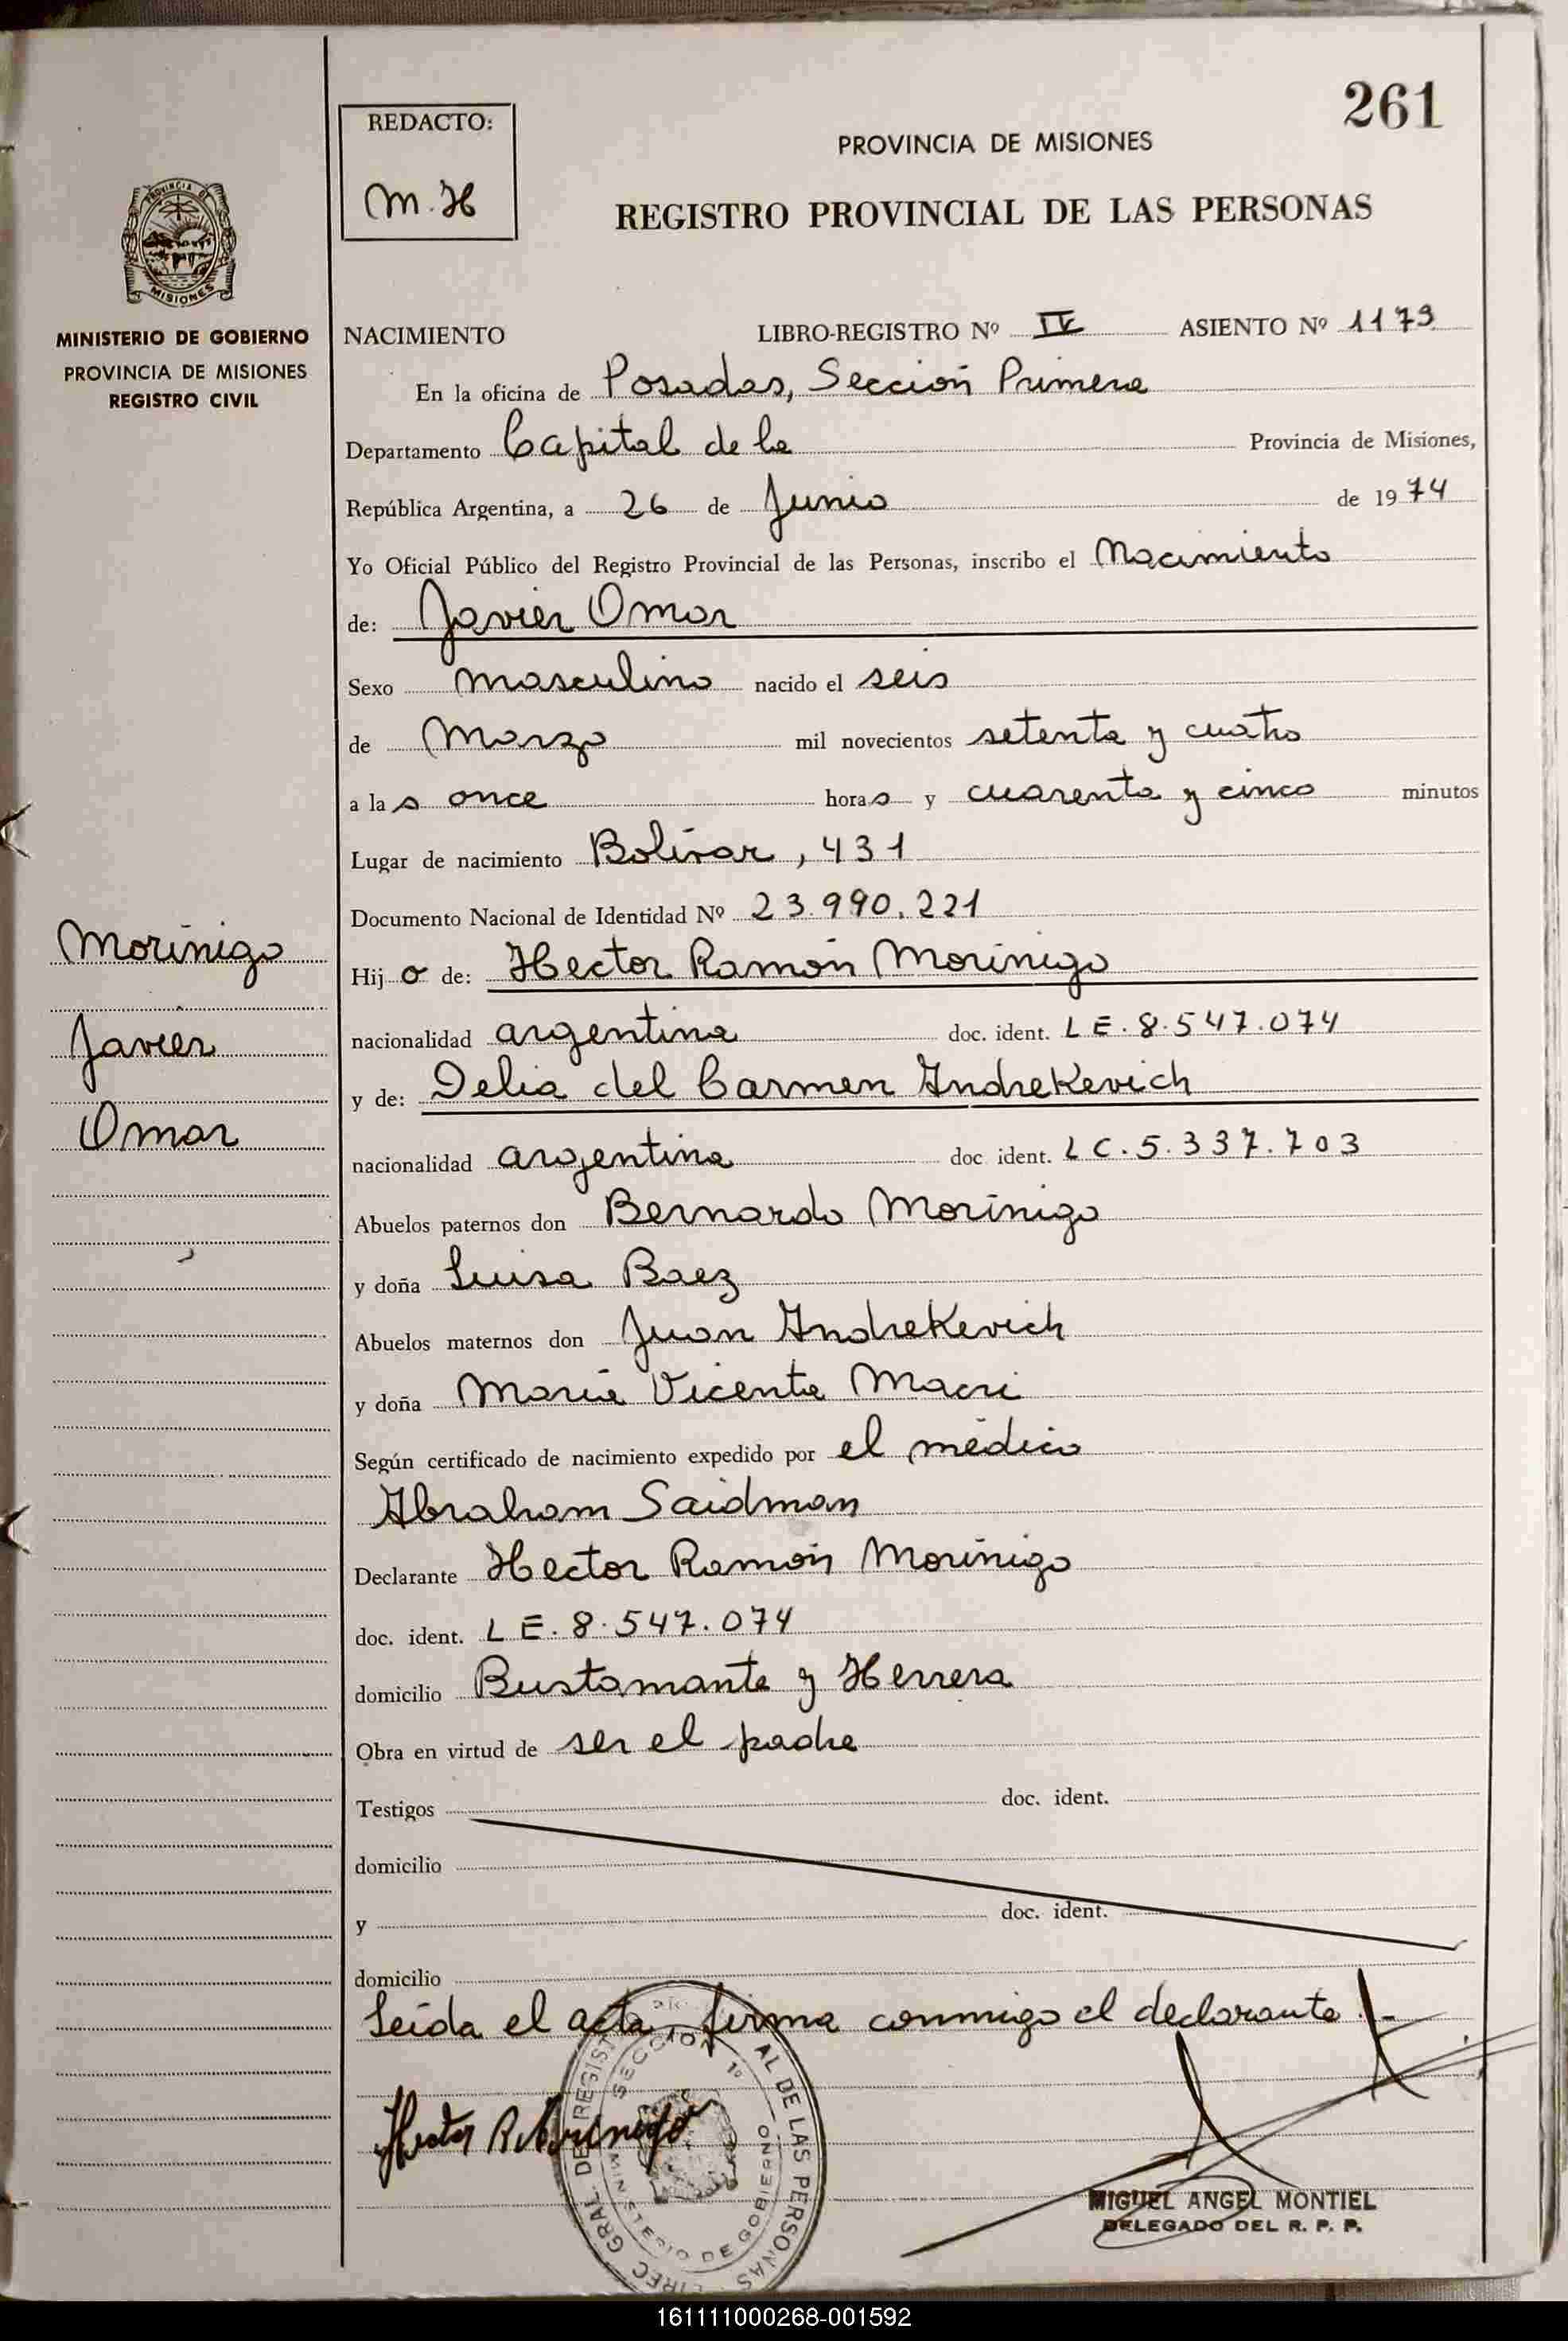 261
REDACTO:
M.H
PROVINCIA DE MISIONES
REGISTRO PROVINCIAL DE LAS PERSONAS
PROVINCIA DE
MISIONES
MINISTERIO DE GOBIERNO
PROVINCIA DE MISIONES
REGISTRO CIVIL
NACIMIENTO LIBRO-REGISTRO Nº IV ASIENTO Nº 1173
En la oficina de Posadas, Sección Primera
Departamento Capital de la Provincia de Misiones,
República Argentina, a 26 de Junio de 1974
Yo Oficial Público del Registro Provincial de las Personas, inscribo el Nacimiento
de: Javier Omar
Sexo masculino nacido el seis
de Marzo mil novecientos setenta y cuatro
a las once horas y cuarenta y cinco minutos
Lugar de nacimiento Bolívar, 431
Documento Nacional de Identidad Nº 23.990.221
Morínigo
Javier
Omar
Hijo de: Hector Ramón Morínigo
nacionalidad argentina doc. ident. LE. 8.547.074
y de: Delia del Carmen Andrekevich
nacionalidad argentina doc ident. LC. 5.337.703
Abuelos paternos don Bernardo Morínigo
y doña Luisa Baez
Abuelos maternos don Juan Andrekevich
y doña María Vicenta Macri
Según certificado de nacimiento expedido por el médico
Abraham Saidman
Declarante Hector Ramón Morínigo
doc. ident. LE. 8.547.074
domicilio Bustamante y Herrera
Obra en virtud de ser el padre
Testigos doc. ident.
domicilio
y doc. ident.
domicilio
Leída el acta, firma conmigo el declarante.-
Hector R. Morinigo
DIREC GRAL. DE REGIST AL DE LAS PERSONAS
SECCION 1º
MINISTERIO DE GOBIERNO
MIGUEL ANGEL MONTIEL
DELEGADO DEL R. P. P.
161111000268-001592